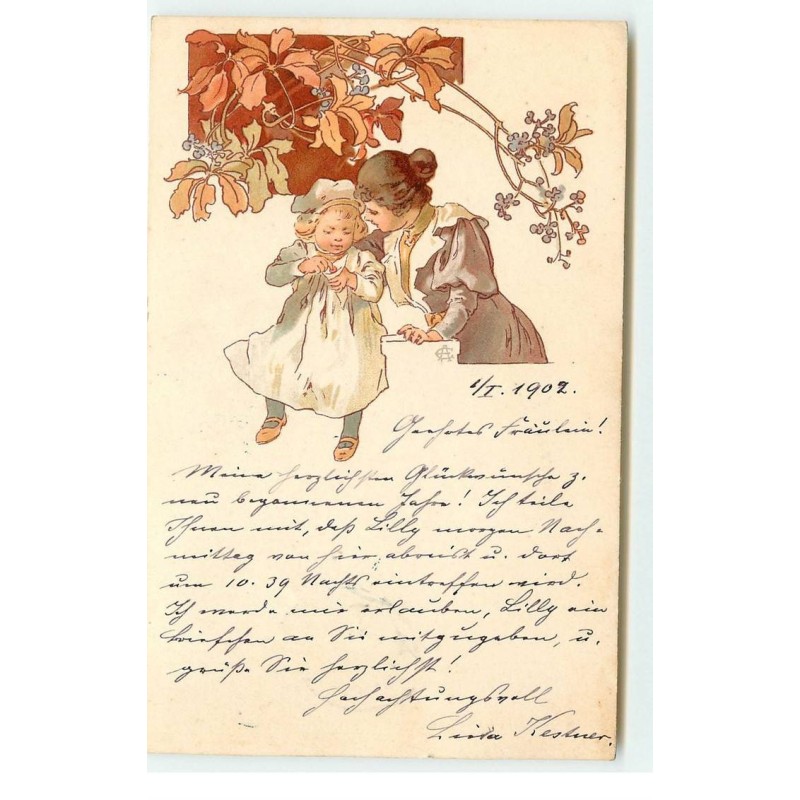 1/I. 1902.
Geehrtes Fräulein!
Meine herzlichsten Glückwünsche z.
neu begonnenen Jahre! Ich teile
Ihnen mit, daß Lilly morgen Nach-
mittag von hier abreist u. dort
um 10.39 Nachts eintreffen wird.
Ich werde mir erlauben, Lilly ein
Briefchen an Sie mitzugeben, u.
grüße Sie herzlichst!
Hochachtungsvoll
Kestner.